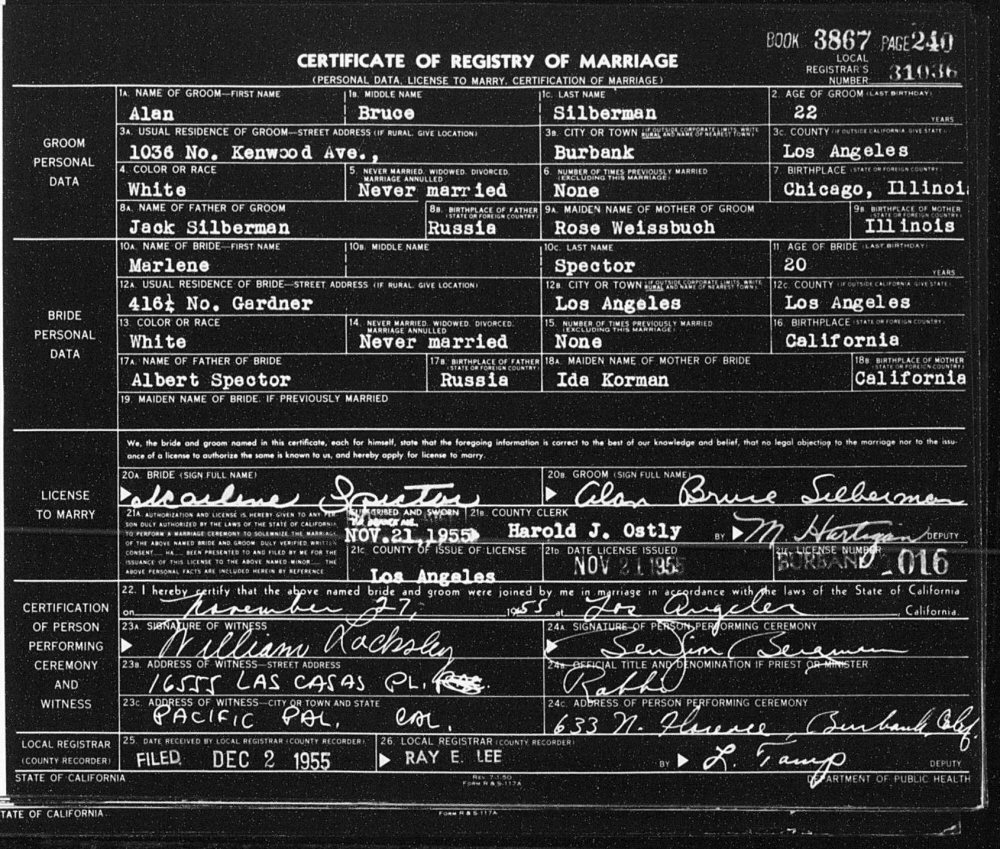 BOOK 3867 PAGE 240
LOCAL REGISTRAR'S NUMBER 31036
CERTIFICATE OF REGISTRY OF MARRIAGE
(PERSONAL DATA, LICENSE TO MARRY, CERTIFICATION OF MARRIAGE)
GROOM PERSONAL DATA
1A. NAME OF GROOM—FIRST NAME 1B. MIDDLE NAME 1C. LAST NAME 2. AGE OF GROOM (LAST BIRTHDAY)
Alan Bruce Silberman 22 YEARS
3A. USUAL RESIDENCE OF GROOM—STREET ADDRESS (IF RURAL, GIVE LOCATION) 3B. CITY OR TOWN (IF OUTSIDE CORPORATE LIMITS, WRITE RURAL AND NAME OF NEAREST TOWN) 3C. COUNTY (IF OUTSIDE CALIFORNIA, GIVE STATE)
1036 No. Kenwood Ave., Burbank Los Angeles
4. COLOR OR RACE 5. NEVER MARRIED, WIDOWED, DIVORCED, MARRIAGE ANNULLED 6. NUMBER OF TIMES PREVIOUSLY MARRIED (EXCLUDING THIS MARRIAGE) 7. BIRTHPLACE (STATE OR FOREIGN COUNTRY)
White Never married None Chicago, Illinoi
8A. NAME OF FATHER OF GROOM 8B. BIRTHPLACE OF FATHER (STATE OR FOREIGN COUNTRY) 9A. MAIDEN NAME OF MOTHER OF GROOM 9B. BIRTHPLACE OF MOTHER (STATE OR FOREIGN COUNTRY)
Jack Silberman Russia Rose Weissbuch Illinois
BRIDE PERSONAL DATA
10A. NAME OF BRIDE—FIRST NAME 10B. MIDDLE NAME 10C. LAST NAME 11. AGE OF BRIDE (LAST BIRTHDAY)
Marlene Spector 20 YEARS
12A. USUAL RESIDENCE OF BRIDE—STREET ADDRESS (IF RURAL, GIVE LOCATION) 12B. CITY OR TOWN (IF OUTSIDE CORPORATE LIMITS, WRITE RURAL AND NAME OF NEAREST TOWN) 12C. COUNTY (IF OUTSIDE CALIFORNIA, GIVE STATE)
416¼ No. Gardner Los Angeles Los Angeles
13. COLOR OR RACE 14. NEVER MARRIED, WIDOWED, DIVORCED, MARRIAGE ANNULLED 15. NUMBER OF TIMES PREVIOUSLY MARRIED (EXCLUDING THIS MARRIAGE) 16. BIRTHPLACE (STATE OR FOREIGN COUNTRY)
White Never married None California
17A. NAME OF FATHER OF BRIDE 17B. BIRTHPLACE OF FATHER (STATE OR FOREIGN COUNTRY) 18A. MAIDEN NAME OF MOTHER OF BRIDE 18B. BIRTHPLACE OF MOTHER (STATE OR FOREIGN COUNTRY)
Albert Spector Russia Ida Korman California
19. MAIDEN NAME OF BRIDE, IF PREVIOUSLY MARRIED
LICENSE TO MARRY
We, the bride and groom named in this certificate, each for himself, state that the foregoing information is correct to the best of our knowledge and belief, that no legal objection to the marriage nor to the issu-
ance of a license to authorize the same is known to us, and hereby apply for license to marry.
20A. BRIDE (SIGN FULL NAME) 20B. GROOM (SIGN FULL NAME)
Marlene Spector Alan Bruce Silberman
21A. AUTHORIZATION AND LICENSE IS HEREBY GIVEN TO ANY PER-
SON DULY AUTHORIZED BY THE LAWS OF THE STATE OF CALIFORNIA
TO PERFORM A MARRIAGE CEREMONY TO SOLEMNIZE THE MARRIAGE
OF THE ABOVE NAMED BRIDE AND GROOM. DULY VERIFIED WRITTEN
CONSENT HA BEEN PRESENTED TO AND FILED BY ME FOR THE
ISSUANCE OF THIS LICENSE TO THE ABOVE NAMED MINOR THE
ABOVE PERSONAL FACTS ARE INCLUDED HEREIN BY REFERENCE.
SUBSCRIBED AND SWORN
NOV. 21, 1955
21B. COUNTY CLERK
Harold J. Ostly BY M. Hartigan DEPUTY
21C. COUNTY OF ISSUE OF LICENSE 21D. DATE LICENSE ISSUED 21E. LICENSE NUMBER
Los Angeles NOV 21 1955 BURBANK 016
CERTIFICATION OF PERSON PERFORMING CEREMONY AND WITNESS
22. I hereby certify that the above named bride and groom were joined by me in marriage in accordance with the laws of the State of California
on November 27, 1955 at Los Angeles, California.
23A. SIGNATURE OF WITNESS 24A. SIGNATURE OF PERSON PERFORMING CEREMONY
William Bergman
23B. ADDRESS OF WITNESS—STREET ADDRESS 24B. OFFICIAL TITLE AND DENOMINATION IF PRIEST OR MINISTER
16555 LAS CASAS PL. Rabbi
23C. ADDRESS OF WITNESS—CITY OR TOWN AND STATE 24C. ADDRESS OF PERSON PERFORMING CEREMONY
PACIFIC PAL. CAL. 633 N. Florence, Burbank, Calif.
LOCAL REGISTRAR (COUNTY RECORDER)
25. DATE RECEIVED BY LOCAL REGISTRAR (COUNTY RECORDER) 26. LOCAL REGISTRAR (COUNTY RECORDER)
FILED DEC 2 1955 RAY E. LEE BY L. Tamp DEPUTY
STATE OF CALIFORNIA REV. 7-1-50 FORM R & S-117A DEPARTMENT OF PUBLIC HEALTH
TATE OF CALIFORNIA FORM R & S-117A